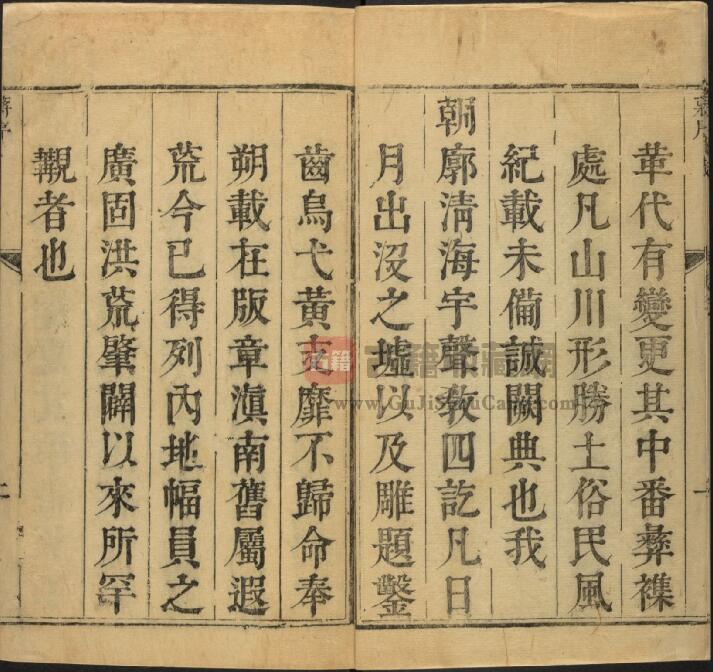 革代有變更其中番彝襍
處凡山川形勝土俗民風
紀載未備誠闕典也我
朝廓淸海宇聲敎四訖凡日
月出沒之墟以及雕題鑿
齒烏弋黃支靡不歸命奉
朔載在版章滇南舊屬遐
荒今已得列內地幅員之
廣固洪荒肇闢以來所罕
覯者也
www.GuJiShuCang.com